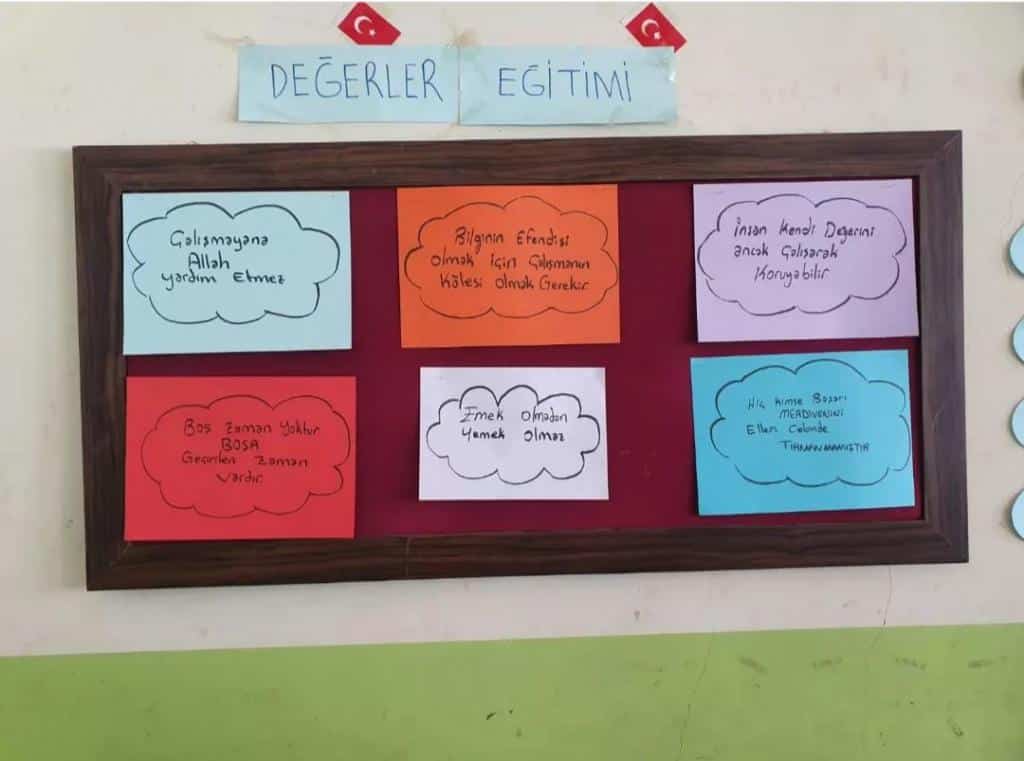 DEĞERLER EĞİTİMİ
Çalışmayana
Allah
yardım Etmez
Bilginin Efendisi
Olmak için Çalışmanın
Kölesi olmak Gerekir
İnsan Kendi Değerini
ancak Çalışarak
Koruyabilir
Boş Zaman Yoktur
BOŞA
Geçirilen Zaman
Vardır.
Emek Olmadan
Yemek Olmaz
Hiç kimse Başarı
MERDİVENİNİ
Elleri Cebinde
TIRMANMAMIŞTIR